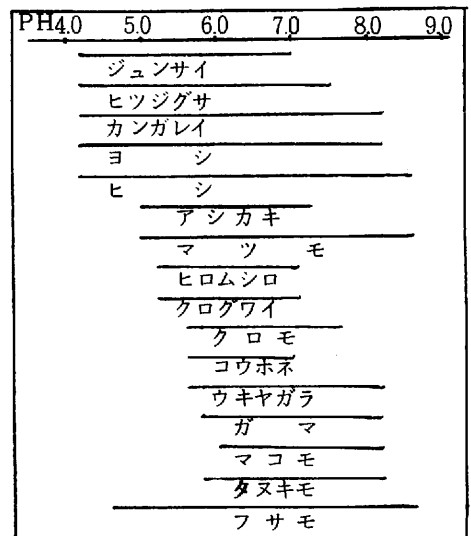 PH4.0 5.0 6.0 7.0 8.0 9.0
ジュンサイ
ヒツジグサ
カンガレイ
ヨシ
ヒシ
アシカキ
マツモ
ヒロムシロ
クログワイ
クロモ
コウホネ
ウキヤガラ
ガマ
マコモ
タヌキモ
フサモ